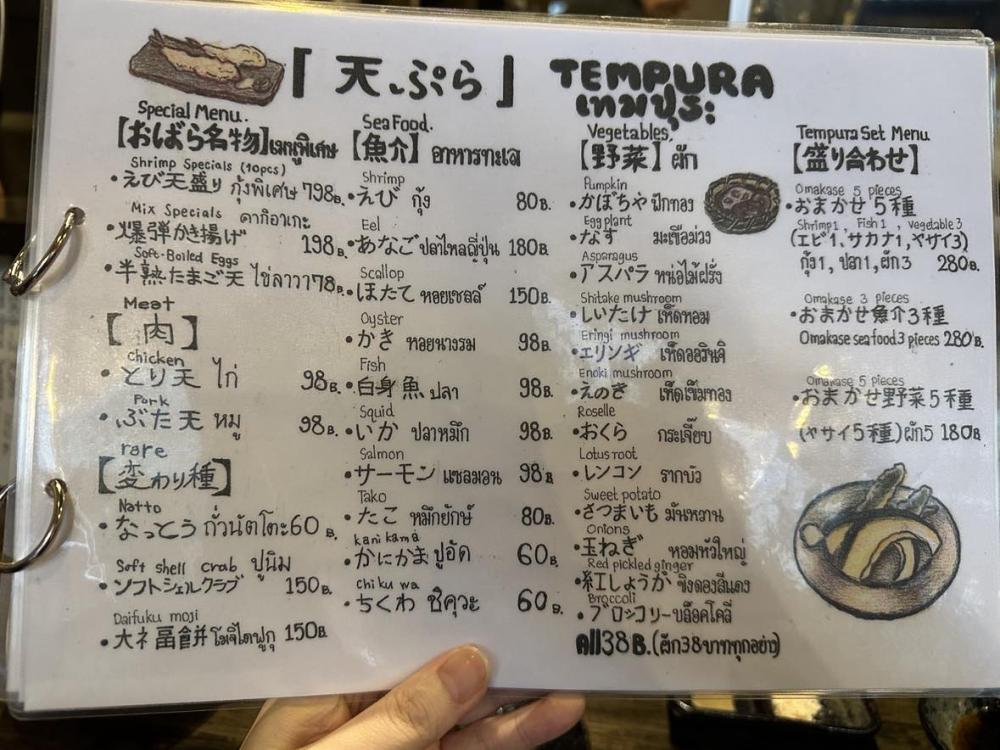 「天ぷら」 TEMPURA
เทมปุระ
Special Menu.
【おばら名物】เมนูพิเศษ
Shrimp Specials (10pcs)
・えび天盛り กุ้งพิเศษ 798B.
Mix Specials คากิอาเกะ
・爆弾かき揚げ 198B.
Soft-Boiled Eggs
・半熟たまご天 ไข่ลาวา 78B.
Meat
【肉】
Chicken
・とり天 ไก่ 98B.
Pork
・ぶた天 หมู 98B.
rare
【変わり種】
Natto
・なっとう ถั่วนัตโตะ 60B.
Soft shell crab ปูนิม
・ソフトシェルクラブ 150B.
Daifuku moji
・大福餅 โมจิไดฟูกุ 150B
Sea Food.
【魚介】อาหารทะเล
Shrimp
・えび กุ้ง 80B.
Eel
・あなご ปลาไหลญี่ปุ่น 180B.
Scallop
・ほたて หอยเชลล์ 150B.
Oyster
・かき หอยนางรม 98B.
Fish
・白身魚 ปลา 98B.
Squid
・いか ปลาหมึก 98B.
Salmon
・サーモン แซลมอน 98B
Tako
・たこ หมึกยักษ์ 80B.
kani kama
・かにかま ปูอัด 60B.
Chikuwa
・ちくわ ชิคุวะ 60B.
Vegetables,
【野菜】ผัก
Pumpkin
・かぼちゃ ฟักทอง
Eggplant
・なす มะเขือม่วง
Asparagus
・アスパラ หน่อไม้ฝรั่ง
Shitake mushroom
・しいたけ เห็ดหอม
Eringi mushroom
・エリンギ เห็ดออรินจิ
Enoki mushroom
・えのき เห็ดเข็มทอง
Roselle
・おくら กระเจี๊ยบ
Lotus root
・レンコン รากบัว
Sweet potato
・さつまいも มันหวาน
Onions
・玉ねぎ หอมหัวใหญ่
Red pickled ginger
・紅しょうが ขิงดองสีแดง
Broccoli
・ブロッコリー บล็อคโคลี่
All 38B. (ผัก38บาททุกอย่าง)
Tempura Set Menu
【盛り合わせ】
Omakase 5 pieces
・おまかせ5種
Shrimp1, Fish1, vegetable3
(エビ1,サカナ1,ヤサイ3)
กุ้ง1, ปลา1,ผัก3 280B.
Omakase 3 pieces
・おまかせ魚介3種
Omakase seafood3 pieces 280B.
Omakase 5 pieces
・おまかせ野菜5種
(ヤサイ5種)ผัก5 180B